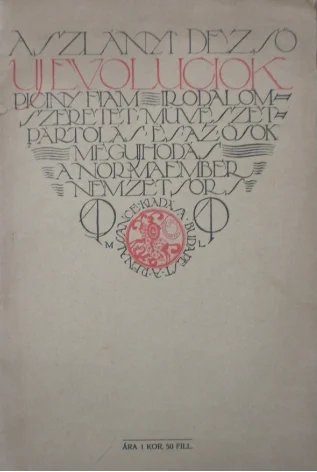 ASZLÁNYI DEZSŐ
UJ EVOLUCIÓK
PICINY FIAM IRODALOM=
SZERETET MŰVÉSZET-
PÁRTOLÁS · ÉS AZ ŐSÖK
MEGUJHODÁS
A NORMAEMBER
NEMZETSORS
M L
A RENAISSANCE KIADÁSA · BUDAPEST ·
ÁRA 1 KOR. 50 FILL.